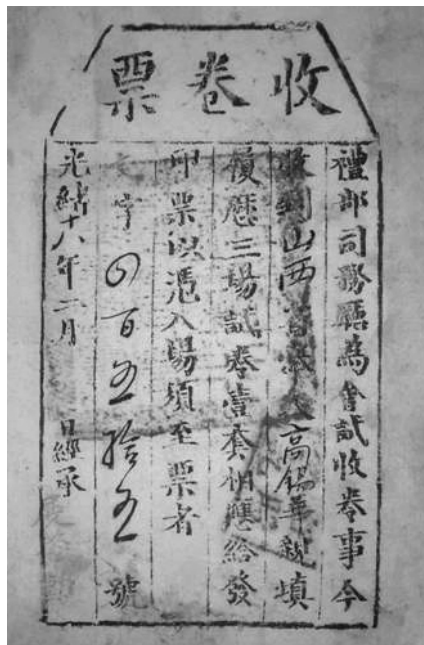 收卷票
禮部司務廳為會試收卷事今
收到山西省舉人高錫華親填
履歷三場試卷壹套相應給發
印票以憑入場須至票者
字四百五拾五號
光緒十八年二月 日經承